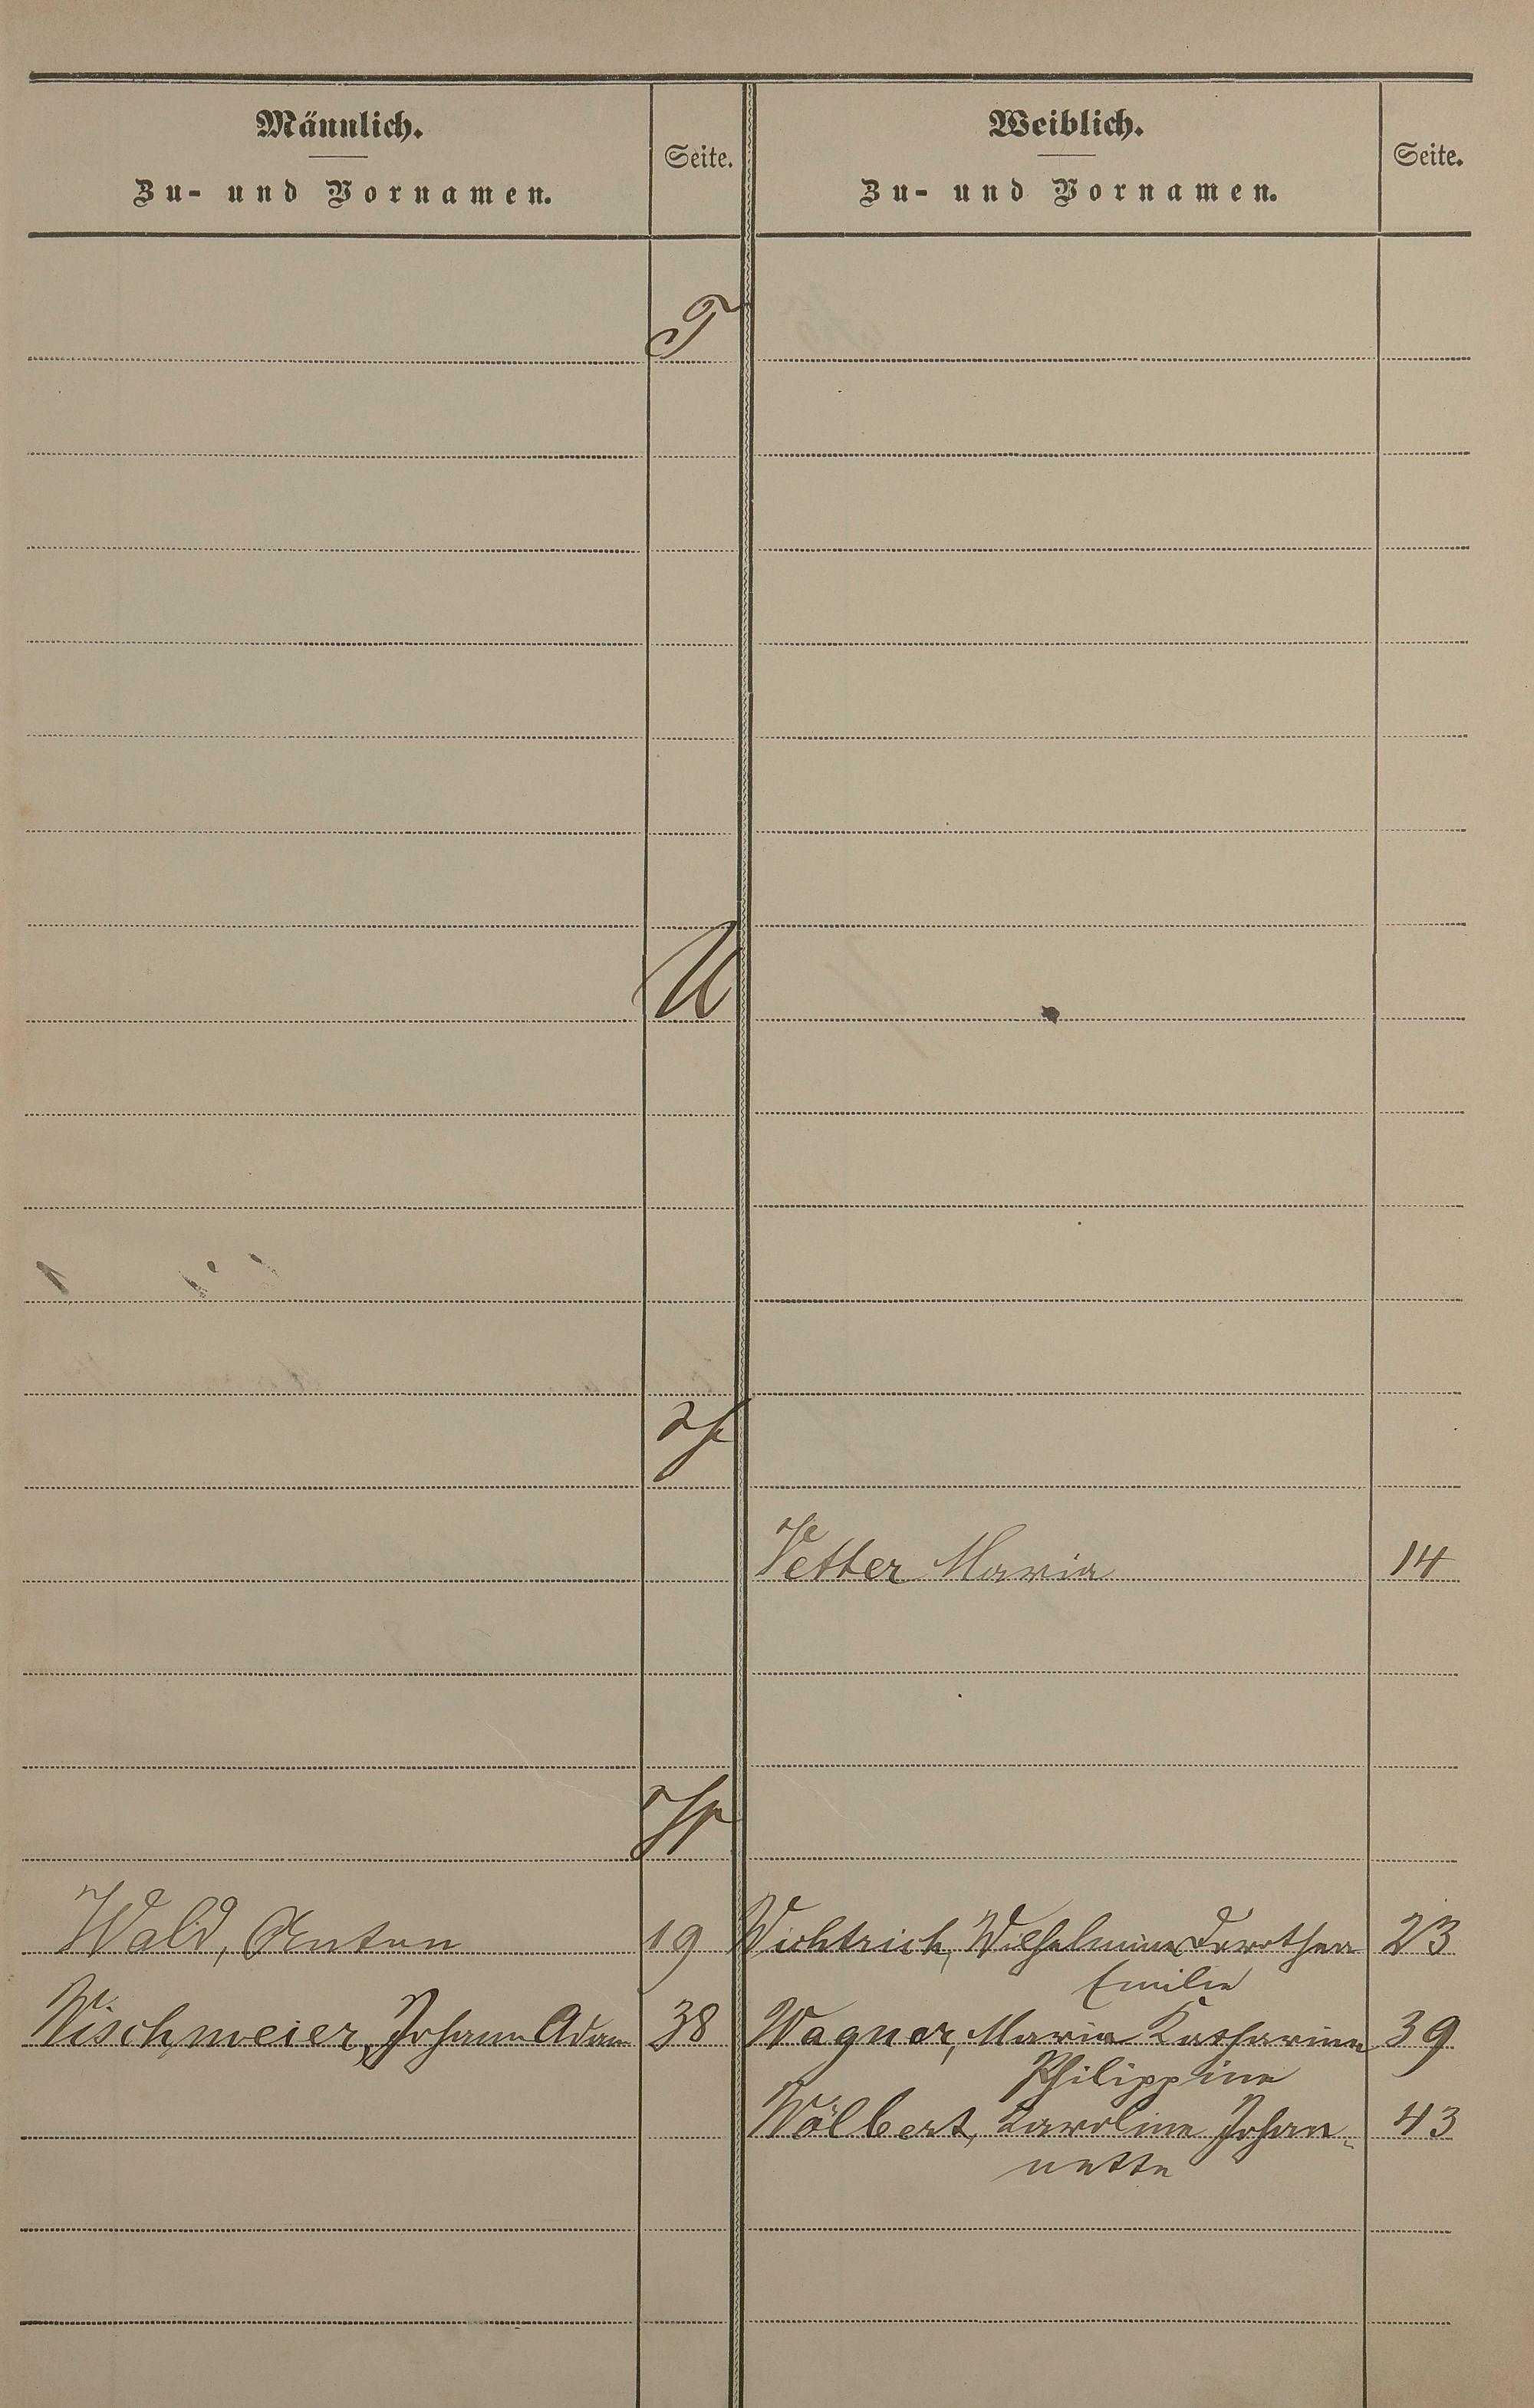 Männlich.
Zu- und Vornamen.
Seite.
Weiblich.
Zu- und Vornamen.
Seite.
T
U
V
Vetter Maria 14
W
Wald, Anton 19
Wichtrich, Wilhelmine Dorothea 23
Emilie
Wischmeier, Johann Adam 38
Wagner, Maria Katharina 39
Philippine
Wölbert, Karoline Johan- 43
nette